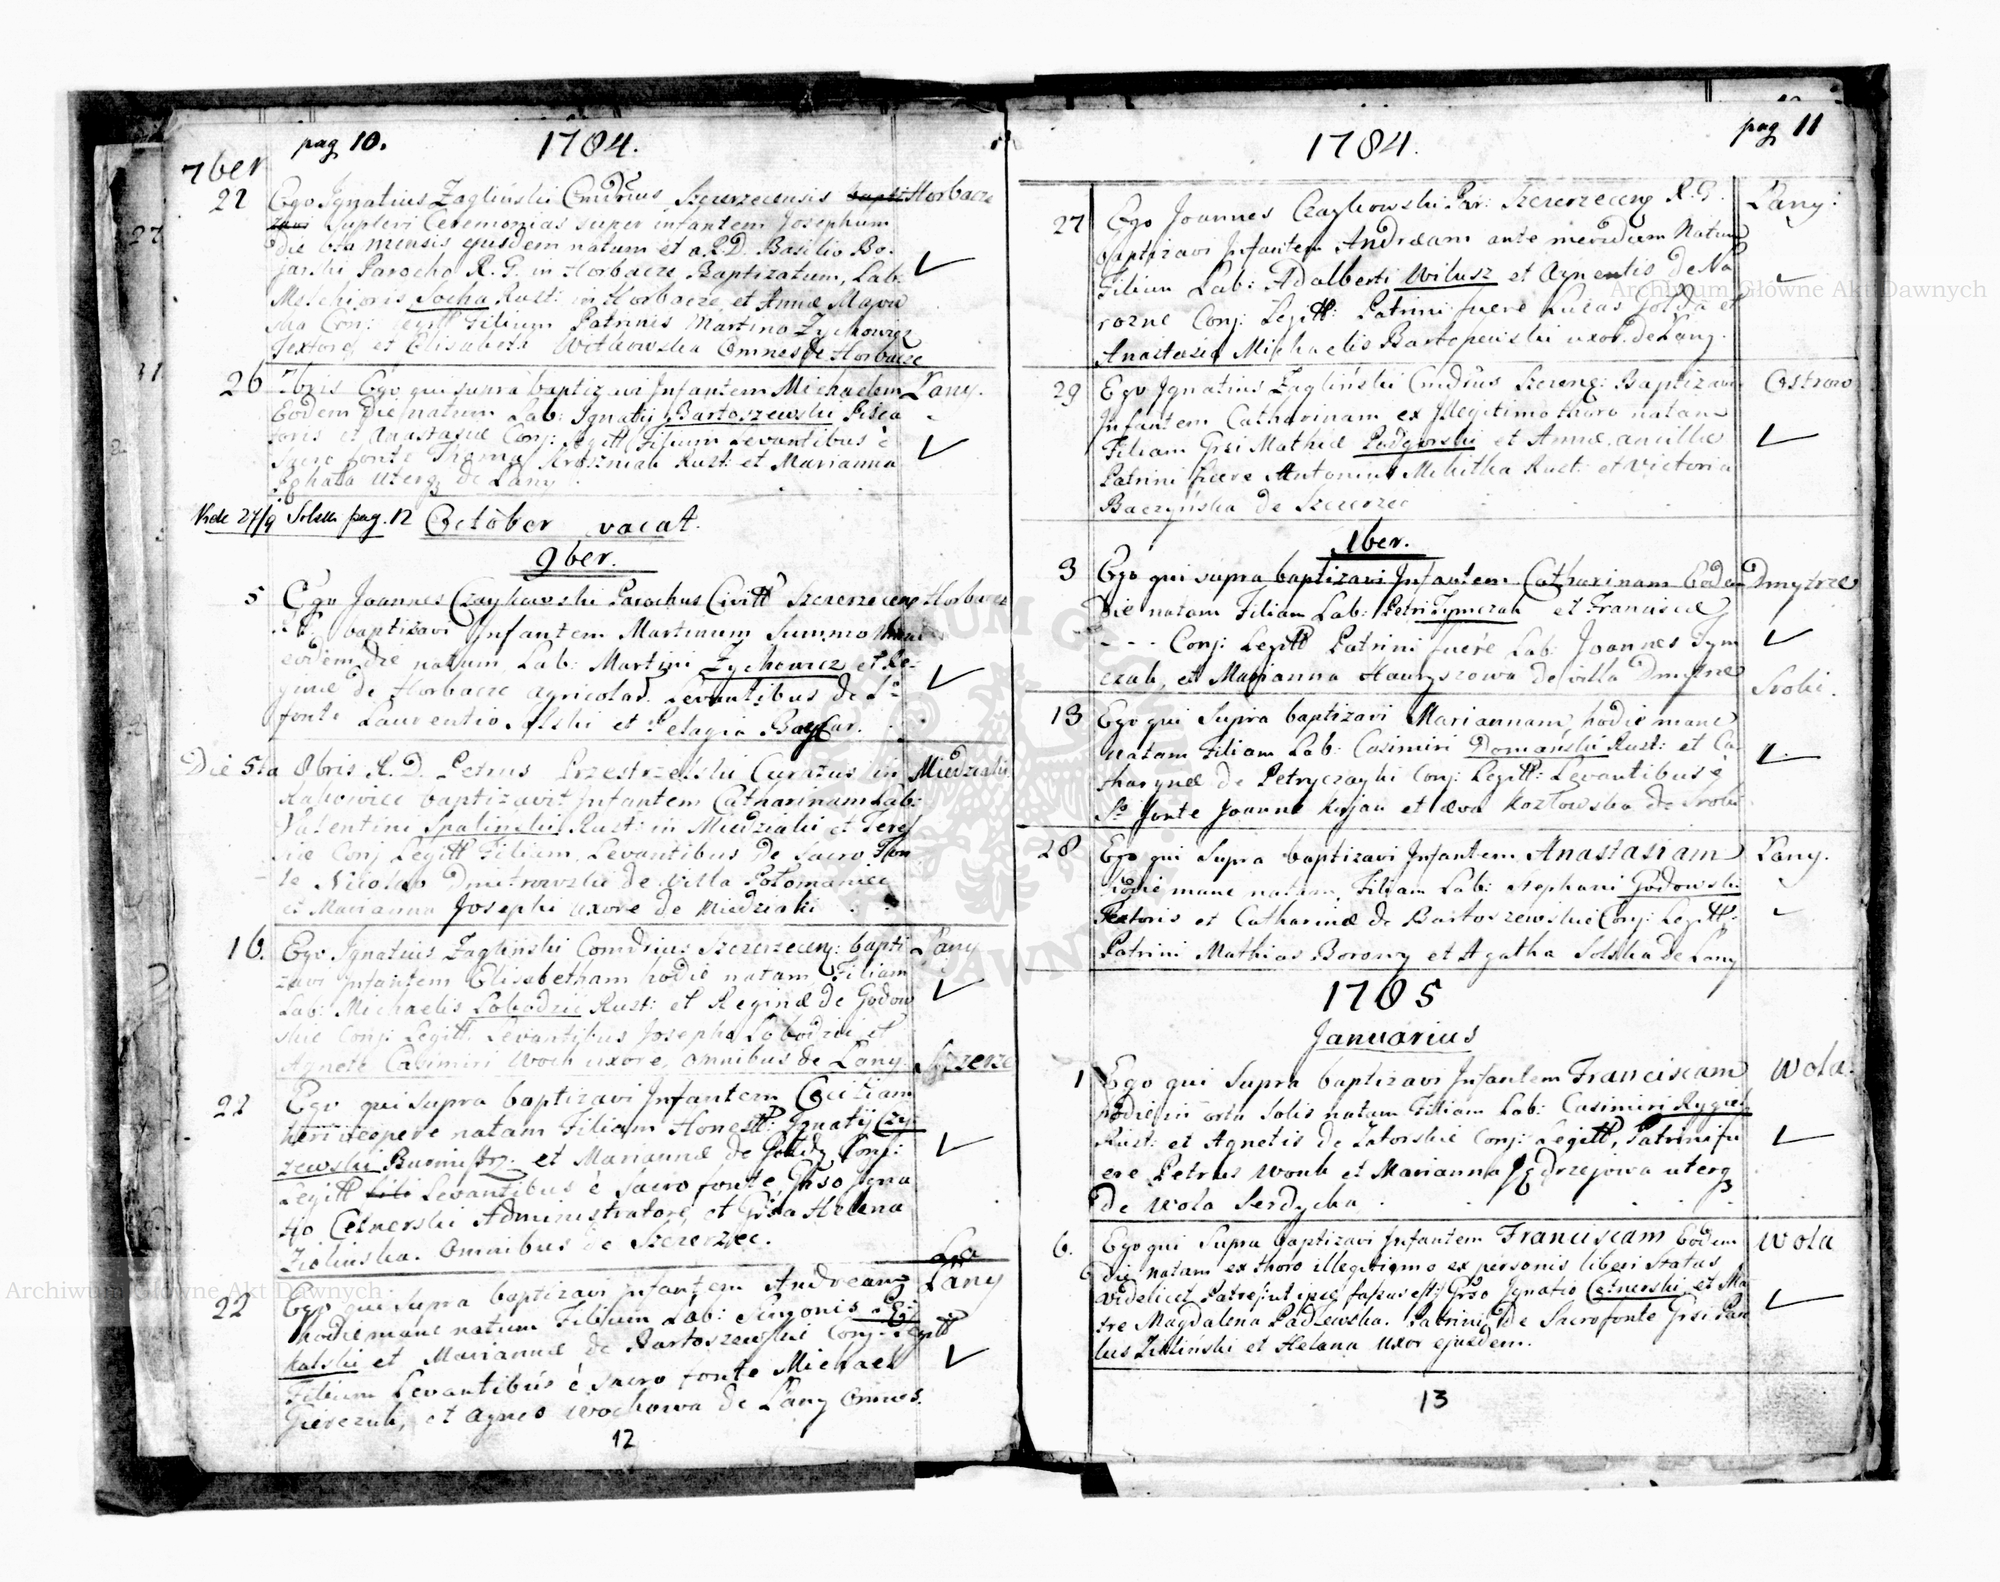 pag 10.
1784.
7ber
22 Ego Ignatius Zagliński Cmdrius Szczerzecensis bapti Horbacze
zavi supleri Ceremonias super infantem Josephum
die mensis ejusdem natum et a R.D. Basilio Bo-
jarski Parocho R. G. in Horbacze Baptizatum, Lab:
Melchioris Socha Rust: in Horbacze et Annæ Majew
ska Conj: Legitt Filium Patrinis Martino Zychowicz
Textore, et Elisabeth Wothowska Omnes de Horbacze
26 7bris Ego qui supra baptizavi Infantem Michaelem Łany.
Eodem die natum Lab: Ignatij Bartoszewski Pisca
toris et Anastasiæ Conj: Legitt Filium Levantibus è
Sacro fonte Thoma Kroszniak Rust: et Marianna
utrq de Łany
Vide 27/9 Solska pag. 12 October vacat.
9ber.
5 Ego Joannes Czaykowski Parochus Civitt Szczerzecen Horbacze
R. G. baptizavi Infantem Martinum Summo mane
eodem die natum, Lab: Martini Zychowicz et Re-
ginæ de Horbacze agricolas. Levantibus de S
fonte Laurentio Ilski et Pelagia
Die 5ta 8bris R. D. Petrus Przestrzelski Curatus in Miedziaki
Rakowiec baptizavit Infantem Catharinam Lab:
Valentini Spalinski Rust: in Miedziaki et Tere
siæ Conj Legitt Filiam, Levantibus de Sacro Fon
te Nicolao Dmitrowski de villa Polomaniec
et Marianna Josephi uxore de Miedziaki
16. Ego Ignatius Zagliński Comdrius Szczerzecen: bapti Łany
zavi Infantem Elisabetham hodie natam Filiam
Lab: Michaelis Łobodzic Rust: et Reginæ de Godow
skie Conj: Legitt. Levantibus Josepho Łobodzic et
Agnete Casimiri Woch uxore, omnibus de Łany Szczerze
22 Ego qui supra baptizavi Infantem Ceciliam
heri vespere natam Filiam Honestt: Ignatij Czy
zewski Burmistrz: et Mariannæ de Goldy Conj:
Legitt fili Levantibus è Sacro fonte Grso Igna
tio Cetnerski Administratore, et Grsa Helena
Zielinska. Omnibus de Szczerzec.
22 Ego qui supra baptizavi Infantem Andream Łany
hodie mane natum Filium Lab: Simonis
kalski et Mariannæ de Bartoszewskie Conj: Legitt
Filium Levantibus è Sacro fonte Michael
Gierczak, et Agnes Wochowa de Łany Omnes.
12
1784.
pag 11
27 Ego Joannes Czaykowski Par: Szczerzecen R. G. Łany:
baptizavi Infantem Andream ante meridiem Natum
Filium Lab: Adalberti Wilusz et Agnentis de Na
rozne Conj: Legitt: Patrini fuere Lucas Golda et
Anastasia Michaelis Bartoszewski uxor de Łany.
29 Ego Ignatius Zagliński Cmdrius Szczerzec: Baptizavi Ostrow
Infantem Catharinam ex Illegitimo thoro natam
Filiam Grsi Mathiæ Podgorski et Annæ ancillæ
Patrini fuere Antonius Mikitka Rust: et Victoria
Baczyńska de Szczerzec
Xber.
3 Ego qui supra baptizavi Infantem Catharinam Eodem Dmytrze
die natam Filiam Lab: Petri Tymczak et Franciscæ
- - - Conj: Legitt Patrini fuere Lab: Joannes Tym
czak, et Marianna Hawryszowa de villa Dmytrze
13 Ego qui Supra baptizavi Mariannam, hodie mane Srobi.
natam Filiam Lab: Casimiri Domański Rust: et Ca
tharynæ de Petryczayki Conj: Legitt: Levantibus è
S. fonte Joanne Kijan et Æva Kozłowska de Srobi
28 Ego qui Supra baptizavi Infantem Anastasiam Łany.
hodie mane natam, Filiam Lab: Stephani Godowski
Textoris et Catharinæ de Bartoszewskie Conj: Legitt:
Patrini Mathias Borowy et Agatha Solska de Łany
1785
Januarius
1 Ego qui Supra baptizavi Infantem Franciscam Wola.
hodie in ortu Solis natam Filiam Lab: Casimiri Rygiel
Rust: et Agnetis de Zatorskie Conj: Legitt, Patrini fu
ere Petrus Wonk et Marianna Jędrzejowa uterq
de Wola Serdycka
6. Ego qui Supra baptizavi Infantem Franciscam Eodem Wola
Die natam ex thoro illegitimo ex personis liberi Status
videlicet Patre, ut ipse fassus est, Grso Ignatio Cetnerski, et Ma
tre Magdalena Padlewska. Patrini De Sacro fonte Grsi Pau
lus Zieliński et Helena uxor ejusdem.
13
Archiwum Główne Akt Dawnych
Archiwum Główne Akt Dawnych